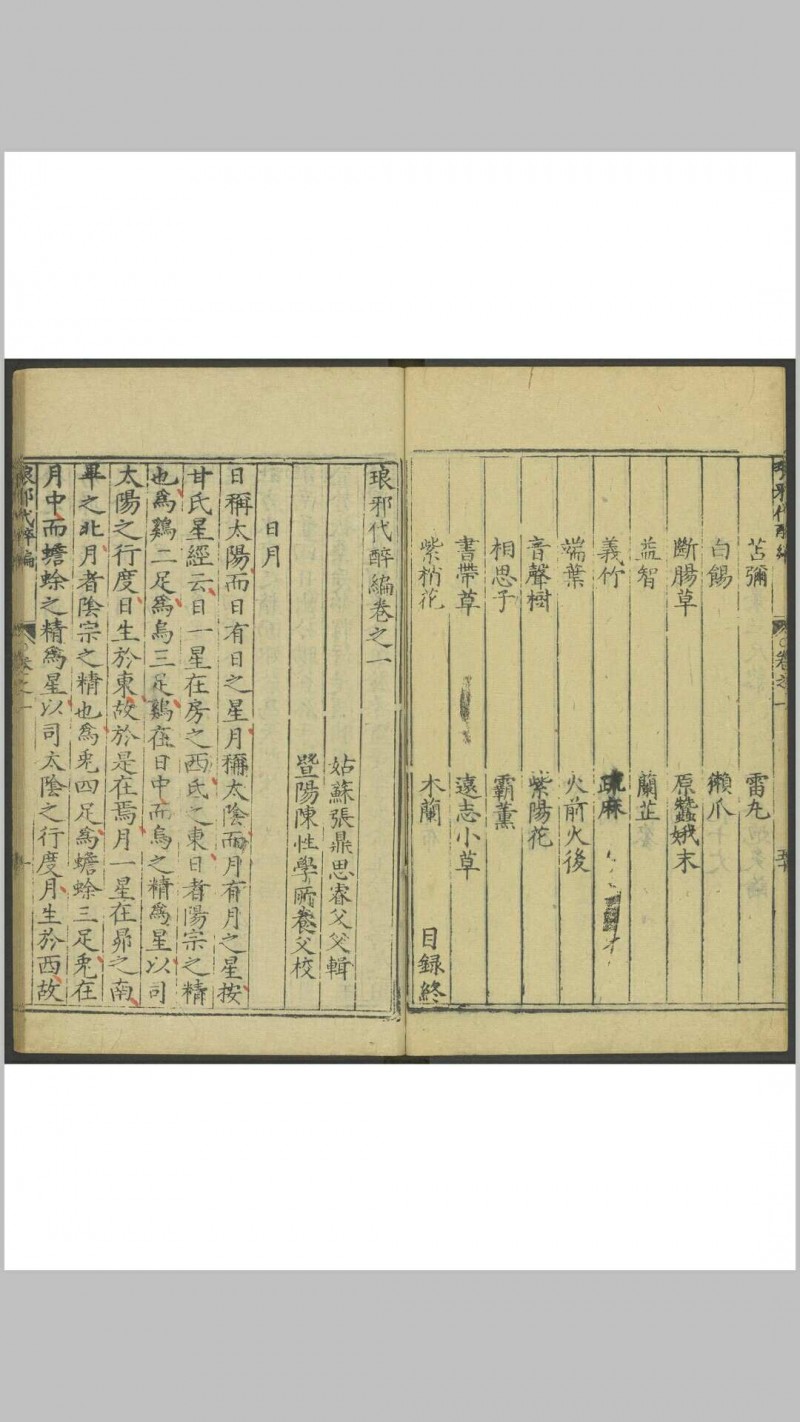 苫彌　雷丸
白餳　獺爪
斷腸草　原蠶娥末
益智　蘭芷
義竹　疏麻
端葉　火前火後
音聲樹　紫陽花
相思子　霸薰
書帶草　遠志小草
紫梢花　木蘭　目録終
琅邪代醉編卷之一
姑蘇張鼎思睿父父輯
暨陽陳性學所養父校
日月
日稱太陽而日有日之星月稱太陰而月有月之星按
甘氏星經云日一星在房之西氐之東日者陽宗之精
也為鷄二足為烏三足鷄在日中而烏之精為星以司
太陽之行度日生於東故於是在焉月一星在昴之南
畢之北月者陰宗之精也為兎四足為蟾蜍三足兎在
月中而蟾蜍之精為星以司太陰之行度月生於西故
琅邪代醉編　卷之一